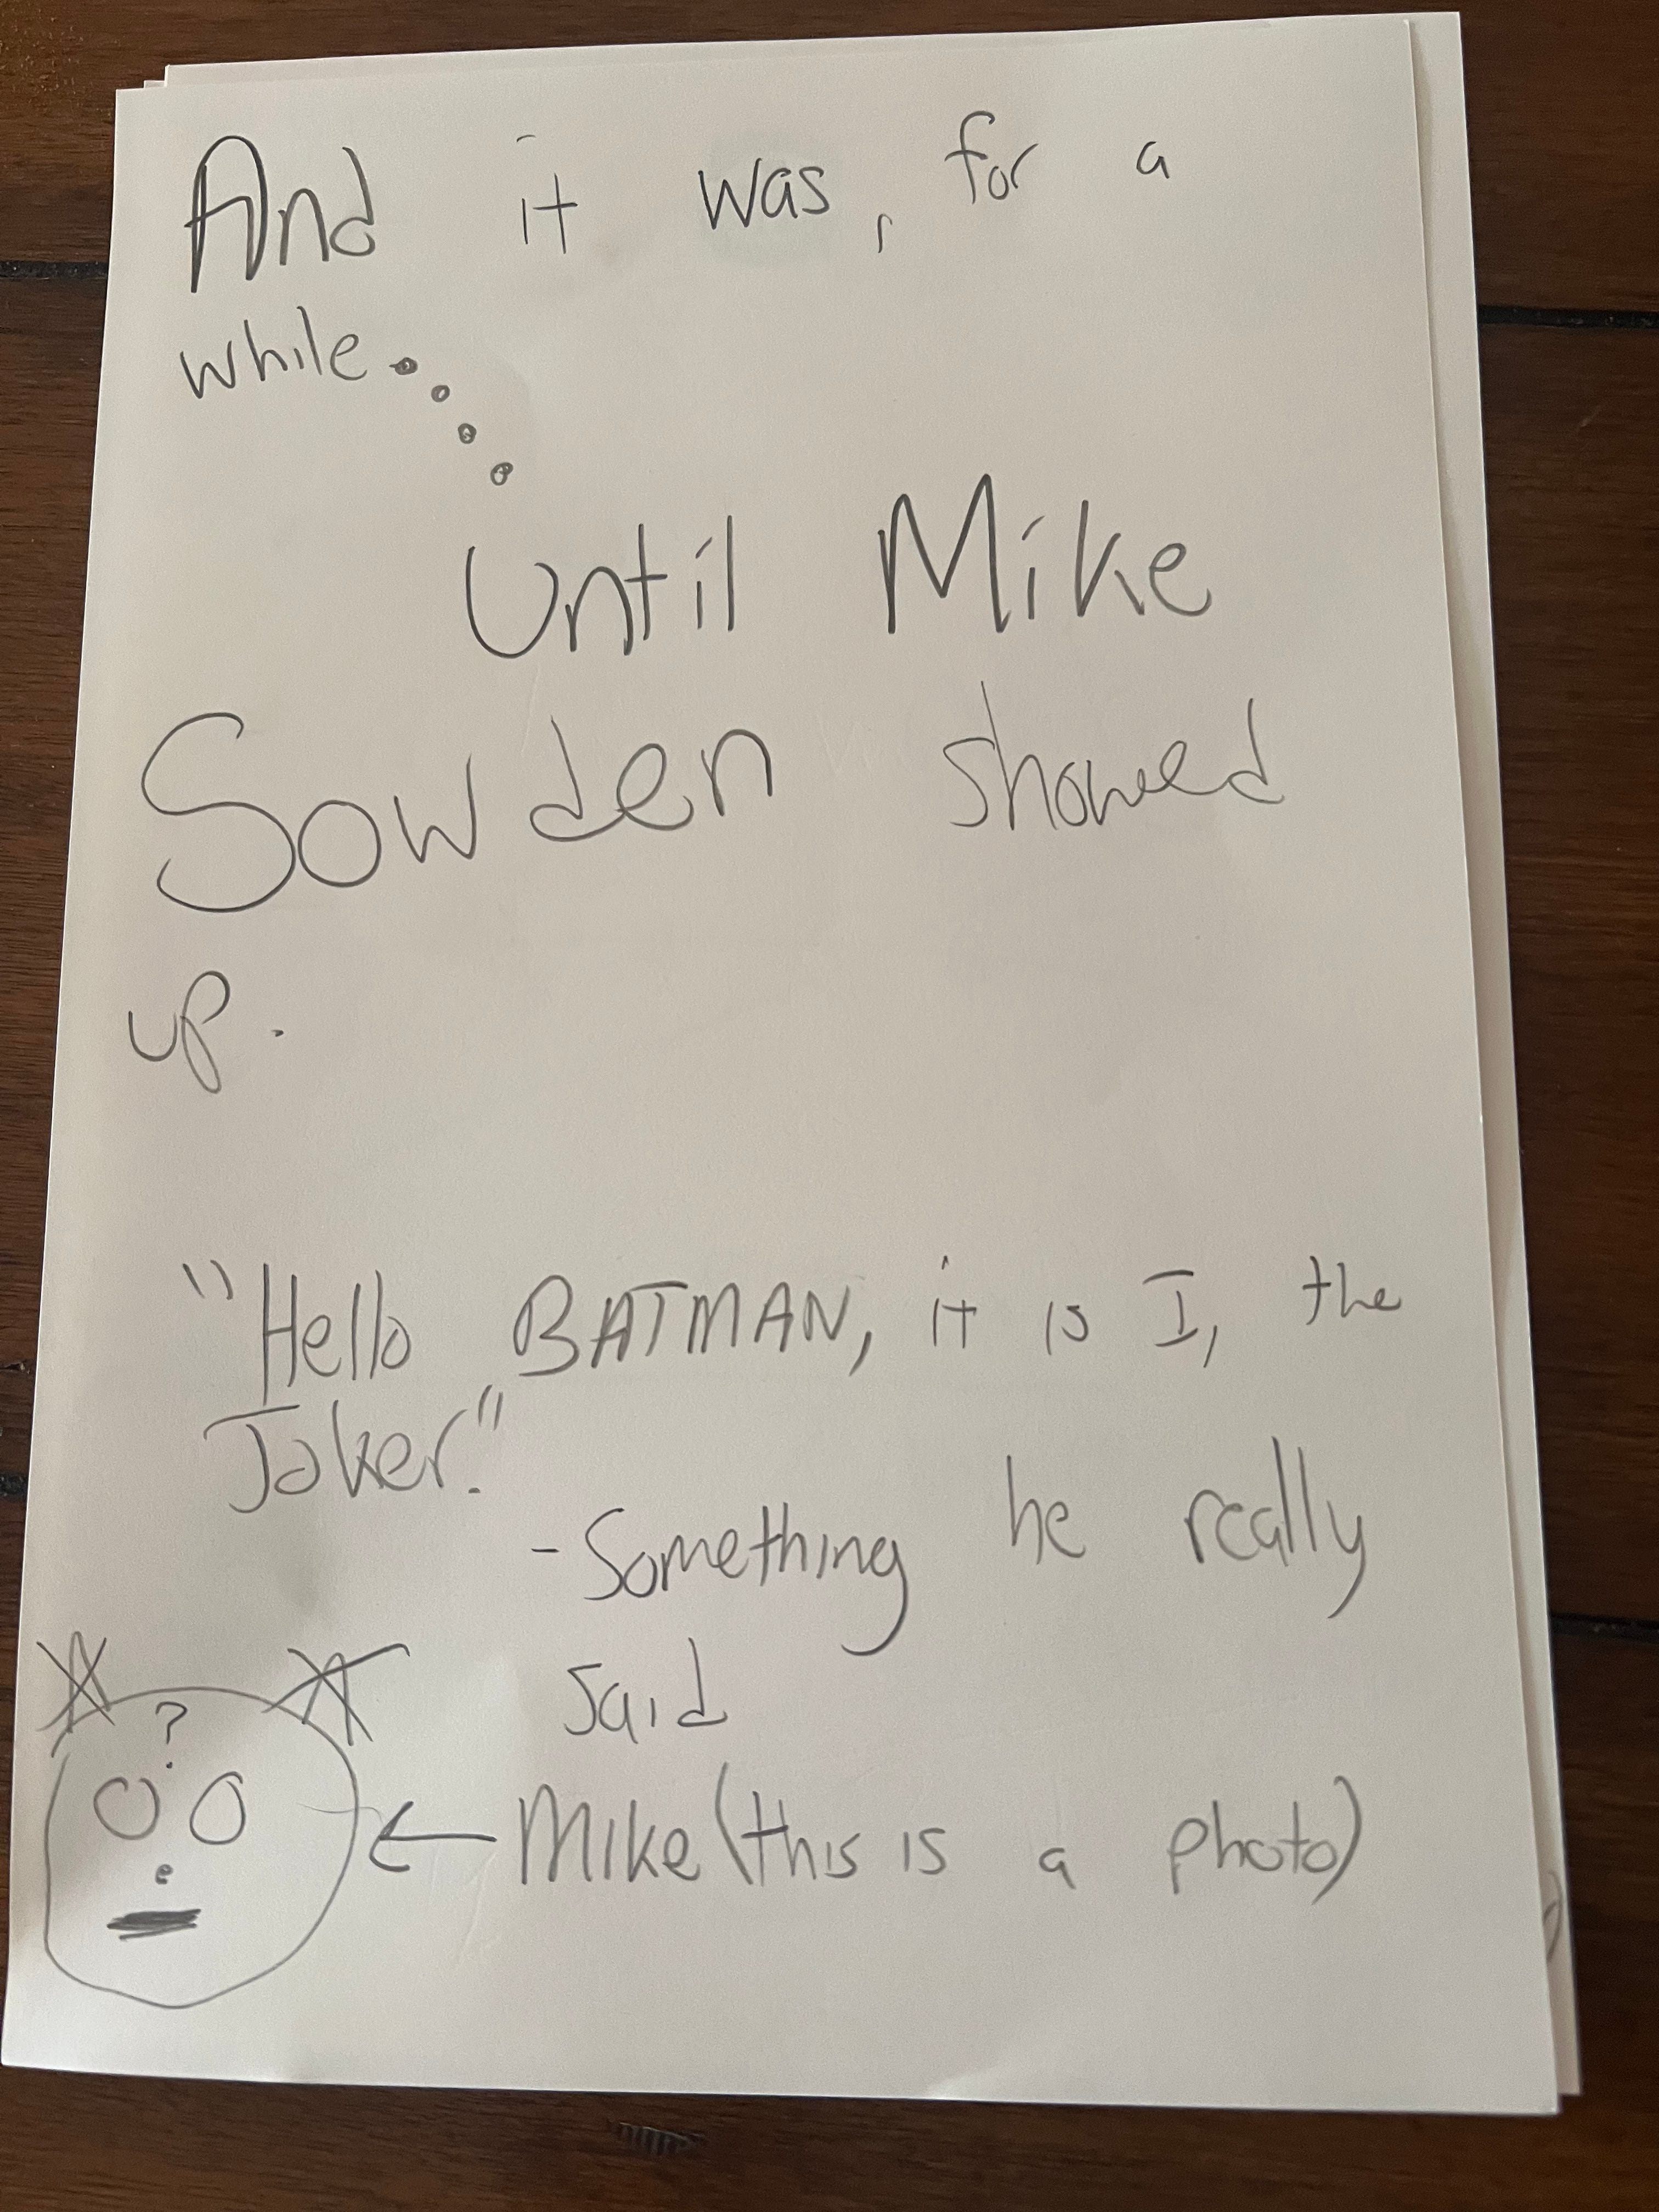 And it was, for a
while....
Until Mike
Sowden showed
up.
"Hello BATMAN, it is I, the
Joker."
- Something he really
said
?
← Mike (this is a photo)